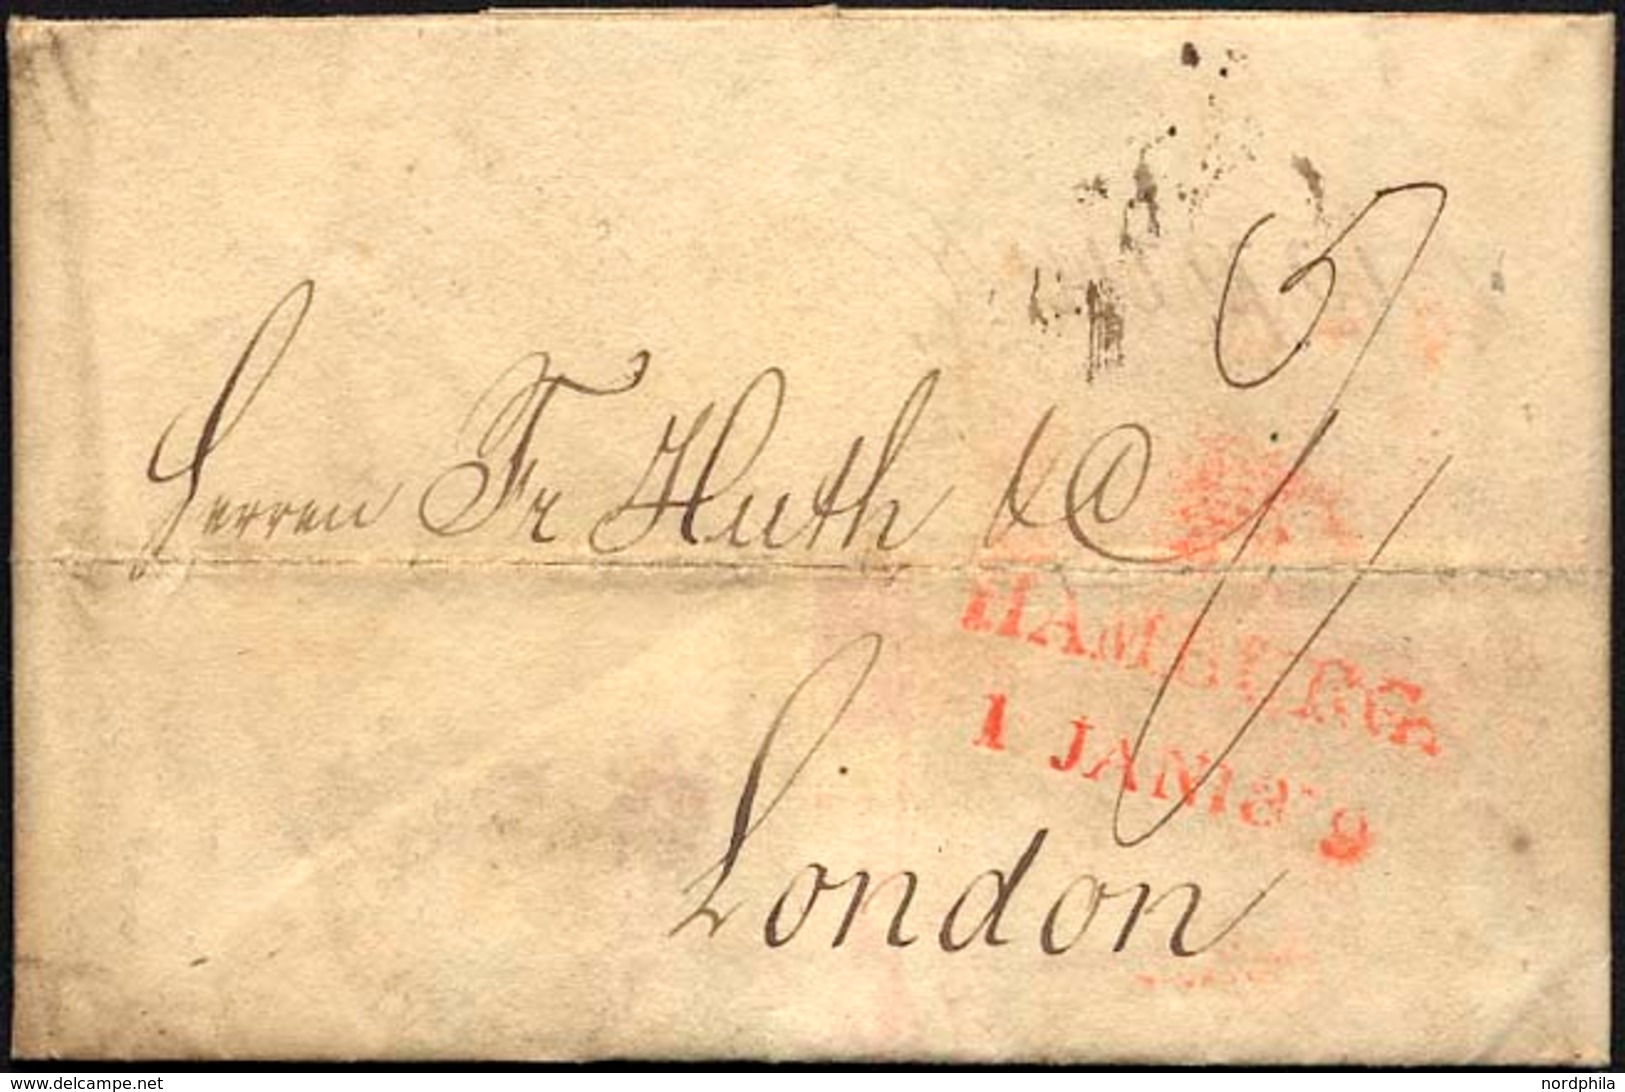 Herren Fr Huth & Co
HAMBURG
1 JAN
London
www.delcampe.net
nordphila